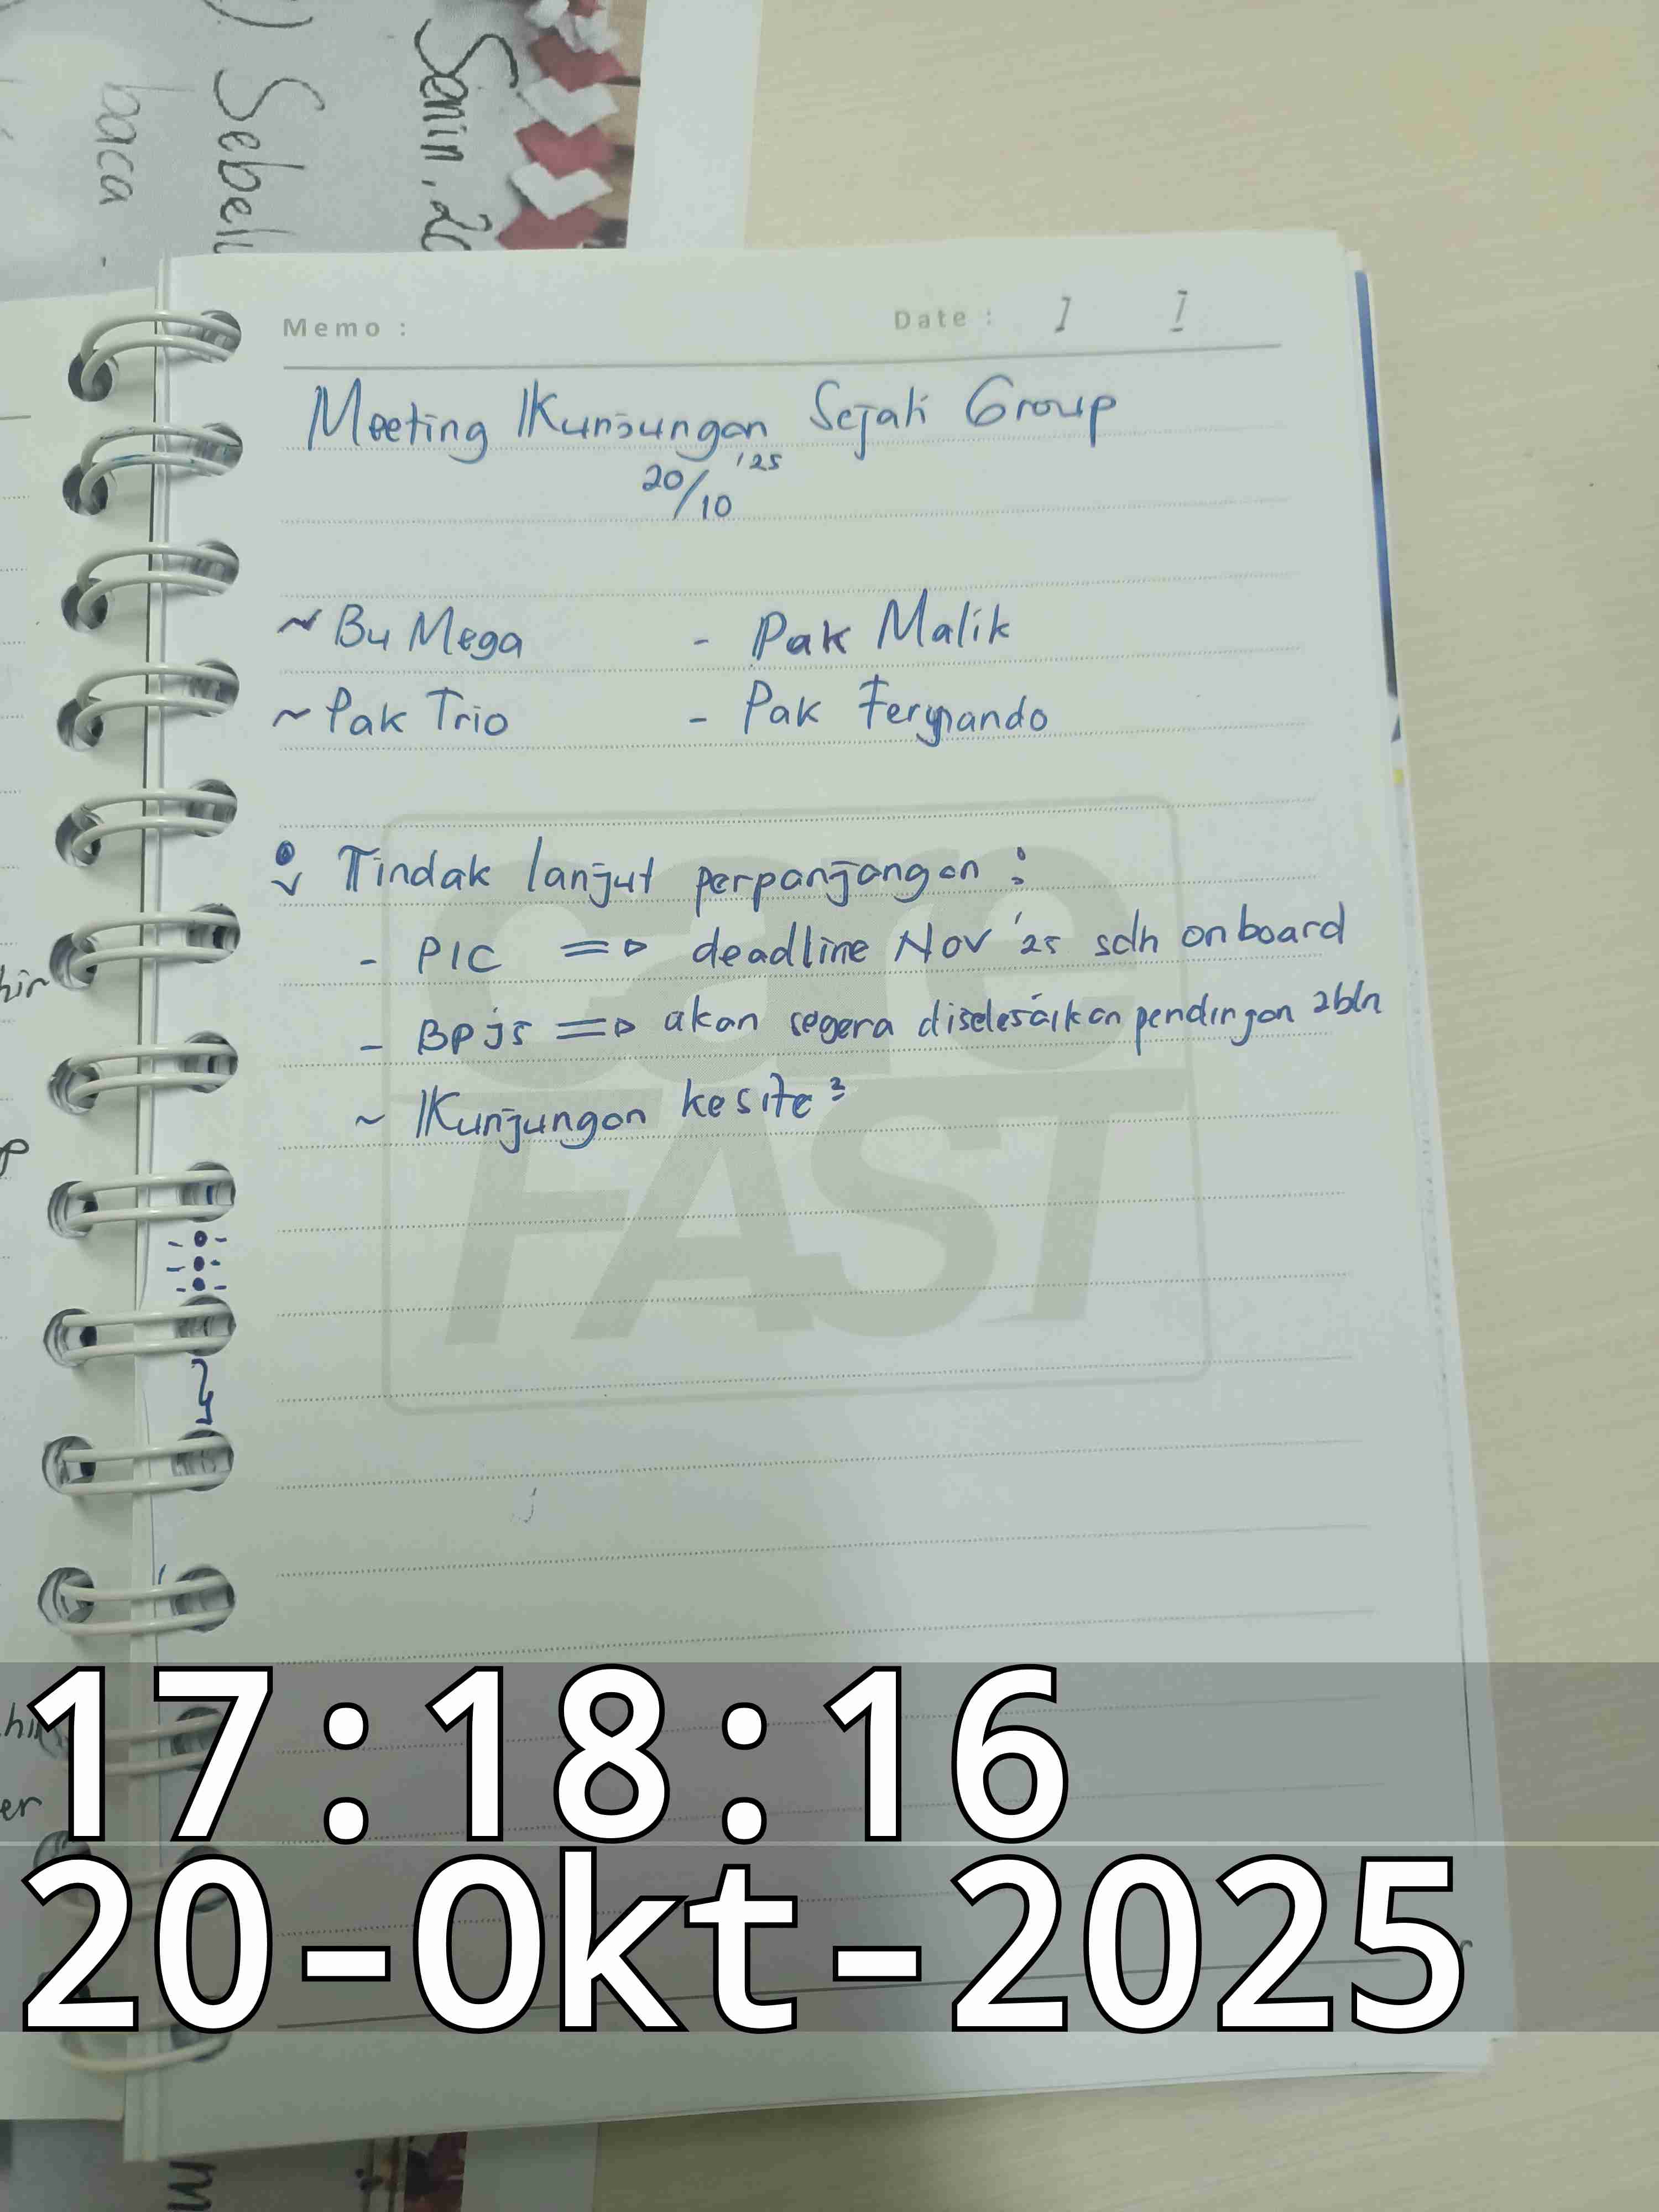 Senin, 20
Sebel
baca -
Memo :
Date : / /
Meeting Kunjungan Sejati Group
20/10 '25
~ Bu Mega - Pak Malik
~ Pak Trio - Pak Fernando
Tindak lanjut perpanjangan :
- PIC => deadline Nov '25 sdh onboard
- BPjs => akan segera diselesaikan pendingan 2bln
~ Kunjungan ke site²
care
FAST
hir
er
17:18:16
20-Okt-2025